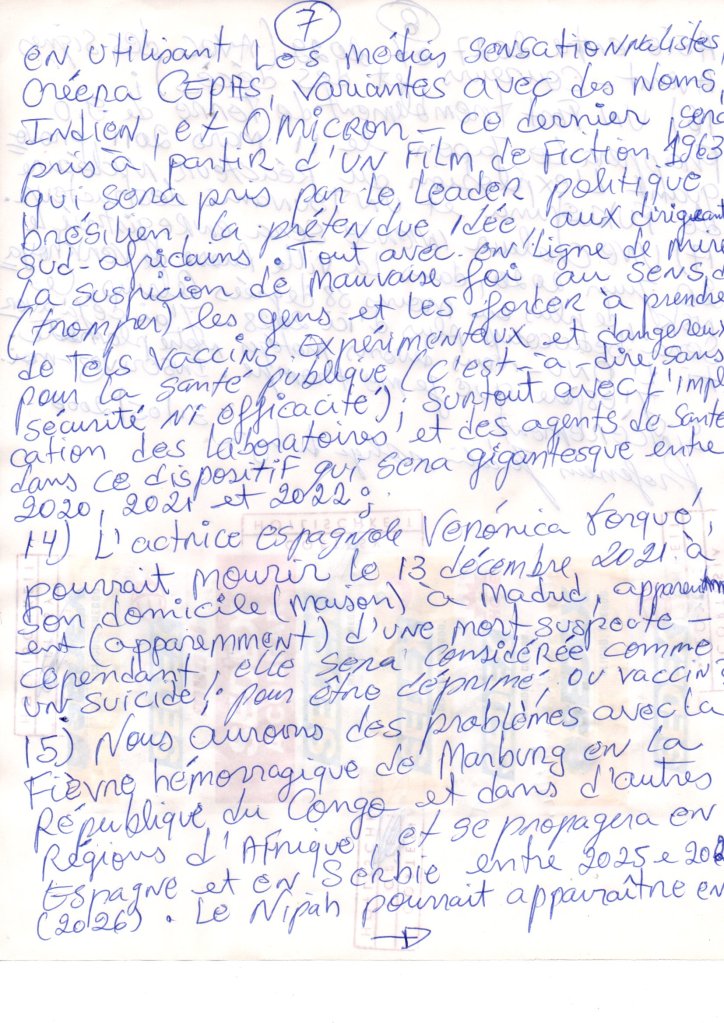 7
en utilisant les médias sensationnalistes,
créera CEPAS, Variantes avec des Noms,
Indien, et OMICRON — ce dernier, sera
pris à partir d'un Film de Fiction 1963
qui sera pris par le leader politique
brésilien, la prétendue idée aux dirigeant
sud-africains. Tout avec en ligne de mire
La suspicion de mauvaise foi au sens, a
(tromper) les gens et les forcer à prendre
de tels vaccins expérimentaux et dangereux
pour la santé publique (c'est-à dire sans
sécurité ni efficacité); surtout avec l'impl
cation des laboratoires et des agents de santé
dans ce dispositif qui sera gigantesque entre
2020, 2021 et 2022;
14) L'actrice espagnole Verónica Forqué,
pourrait mourir le 13 décembre 2021 à
son domicile (maison) à Madrid, apparemm
ent (apparemment) d'une mort suspecte —
cependant, elle sera considérée comme
un suicide; pour être déprimé, ou vaccin;
15) Nous aurons des problèmes avec la
Fièvre hémorragique de Marburg en la
République du Congo et dans d'autres
Régions d'Afrique, et se propagera en
Espagne et en Serbie entre 2025 e 202
(2026). Le Nipah pourrait apparaître en